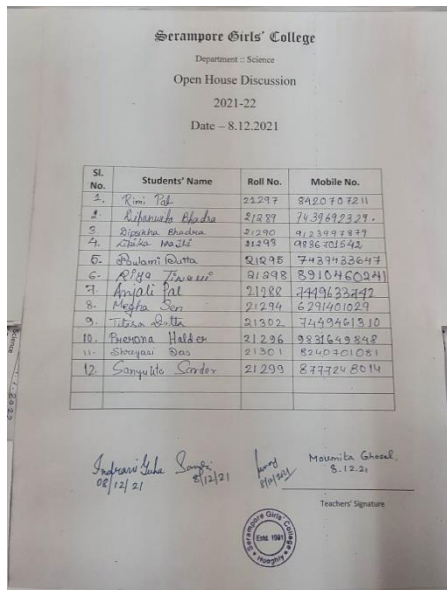 Serampore Girls' College
Department :: Science
Open House Discussion
2021-22
Date – 8.12.2021
Sl. No. Students' Name Roll No. Mobile No.
1. Rimi Pal 21297 8420707211
2. Dipanwita Bhadra 21289 7439692329.
3. Dipikha Bhadra 21290 9123997879
4. Maithi 21293 9886701542
5. Poulami Dutta 21295 7439433647
6- Riya Tiwari 21298 8910460241
7. Anjali Pal 21288 7449633742
8. Megha Sen 21294 6291401029
9. Titisa Dutta 21302 7449461310
10. Prerona Halder 21296 9831649848
11- Shreyasi Das 21301 8240701081
12. Sanyukta Sardar 21299 8777248014
Indrani Guha
08/12/21
8/12/21
Moumita Ghosal.
8.12.21
Teachers' Signature
Serampore Girls' College
Estd. 1981
Hooghly